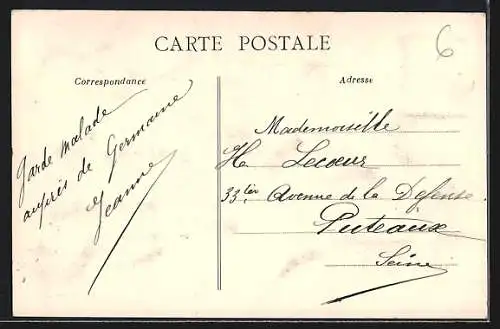 CARTE POSTALE
6
Correspondance
Adresse
Garde malade
auprès de Germaine
Jeanne
Mademoiselle
H Lecœur
33 ter, Avenue de la Défense
Puteaux
Seine